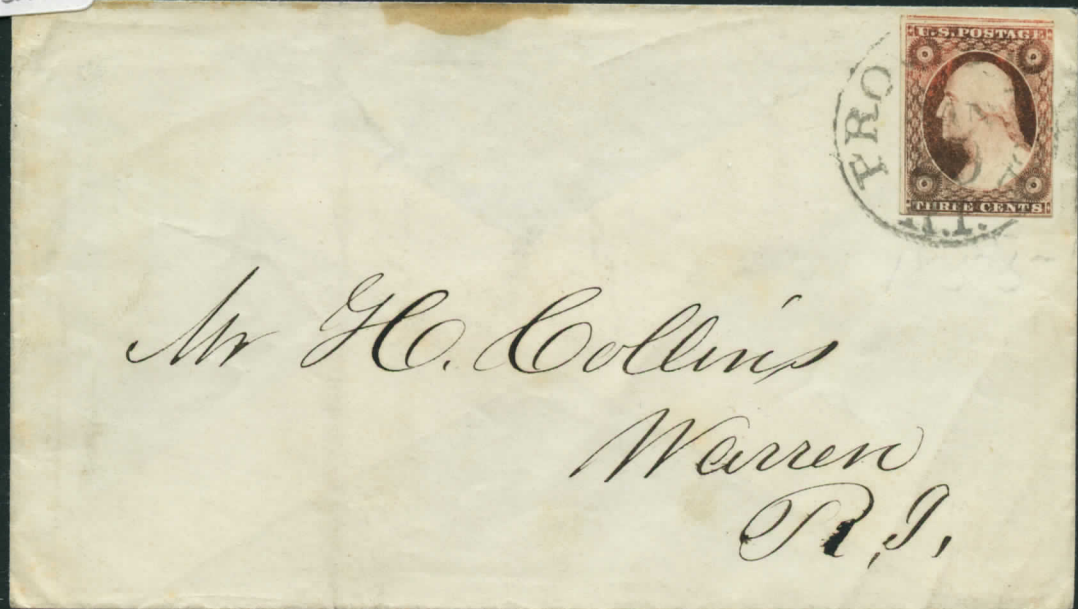 U.S. POSTAGE
THREE CENTS
Mr H. Collins
Warren
R.I.